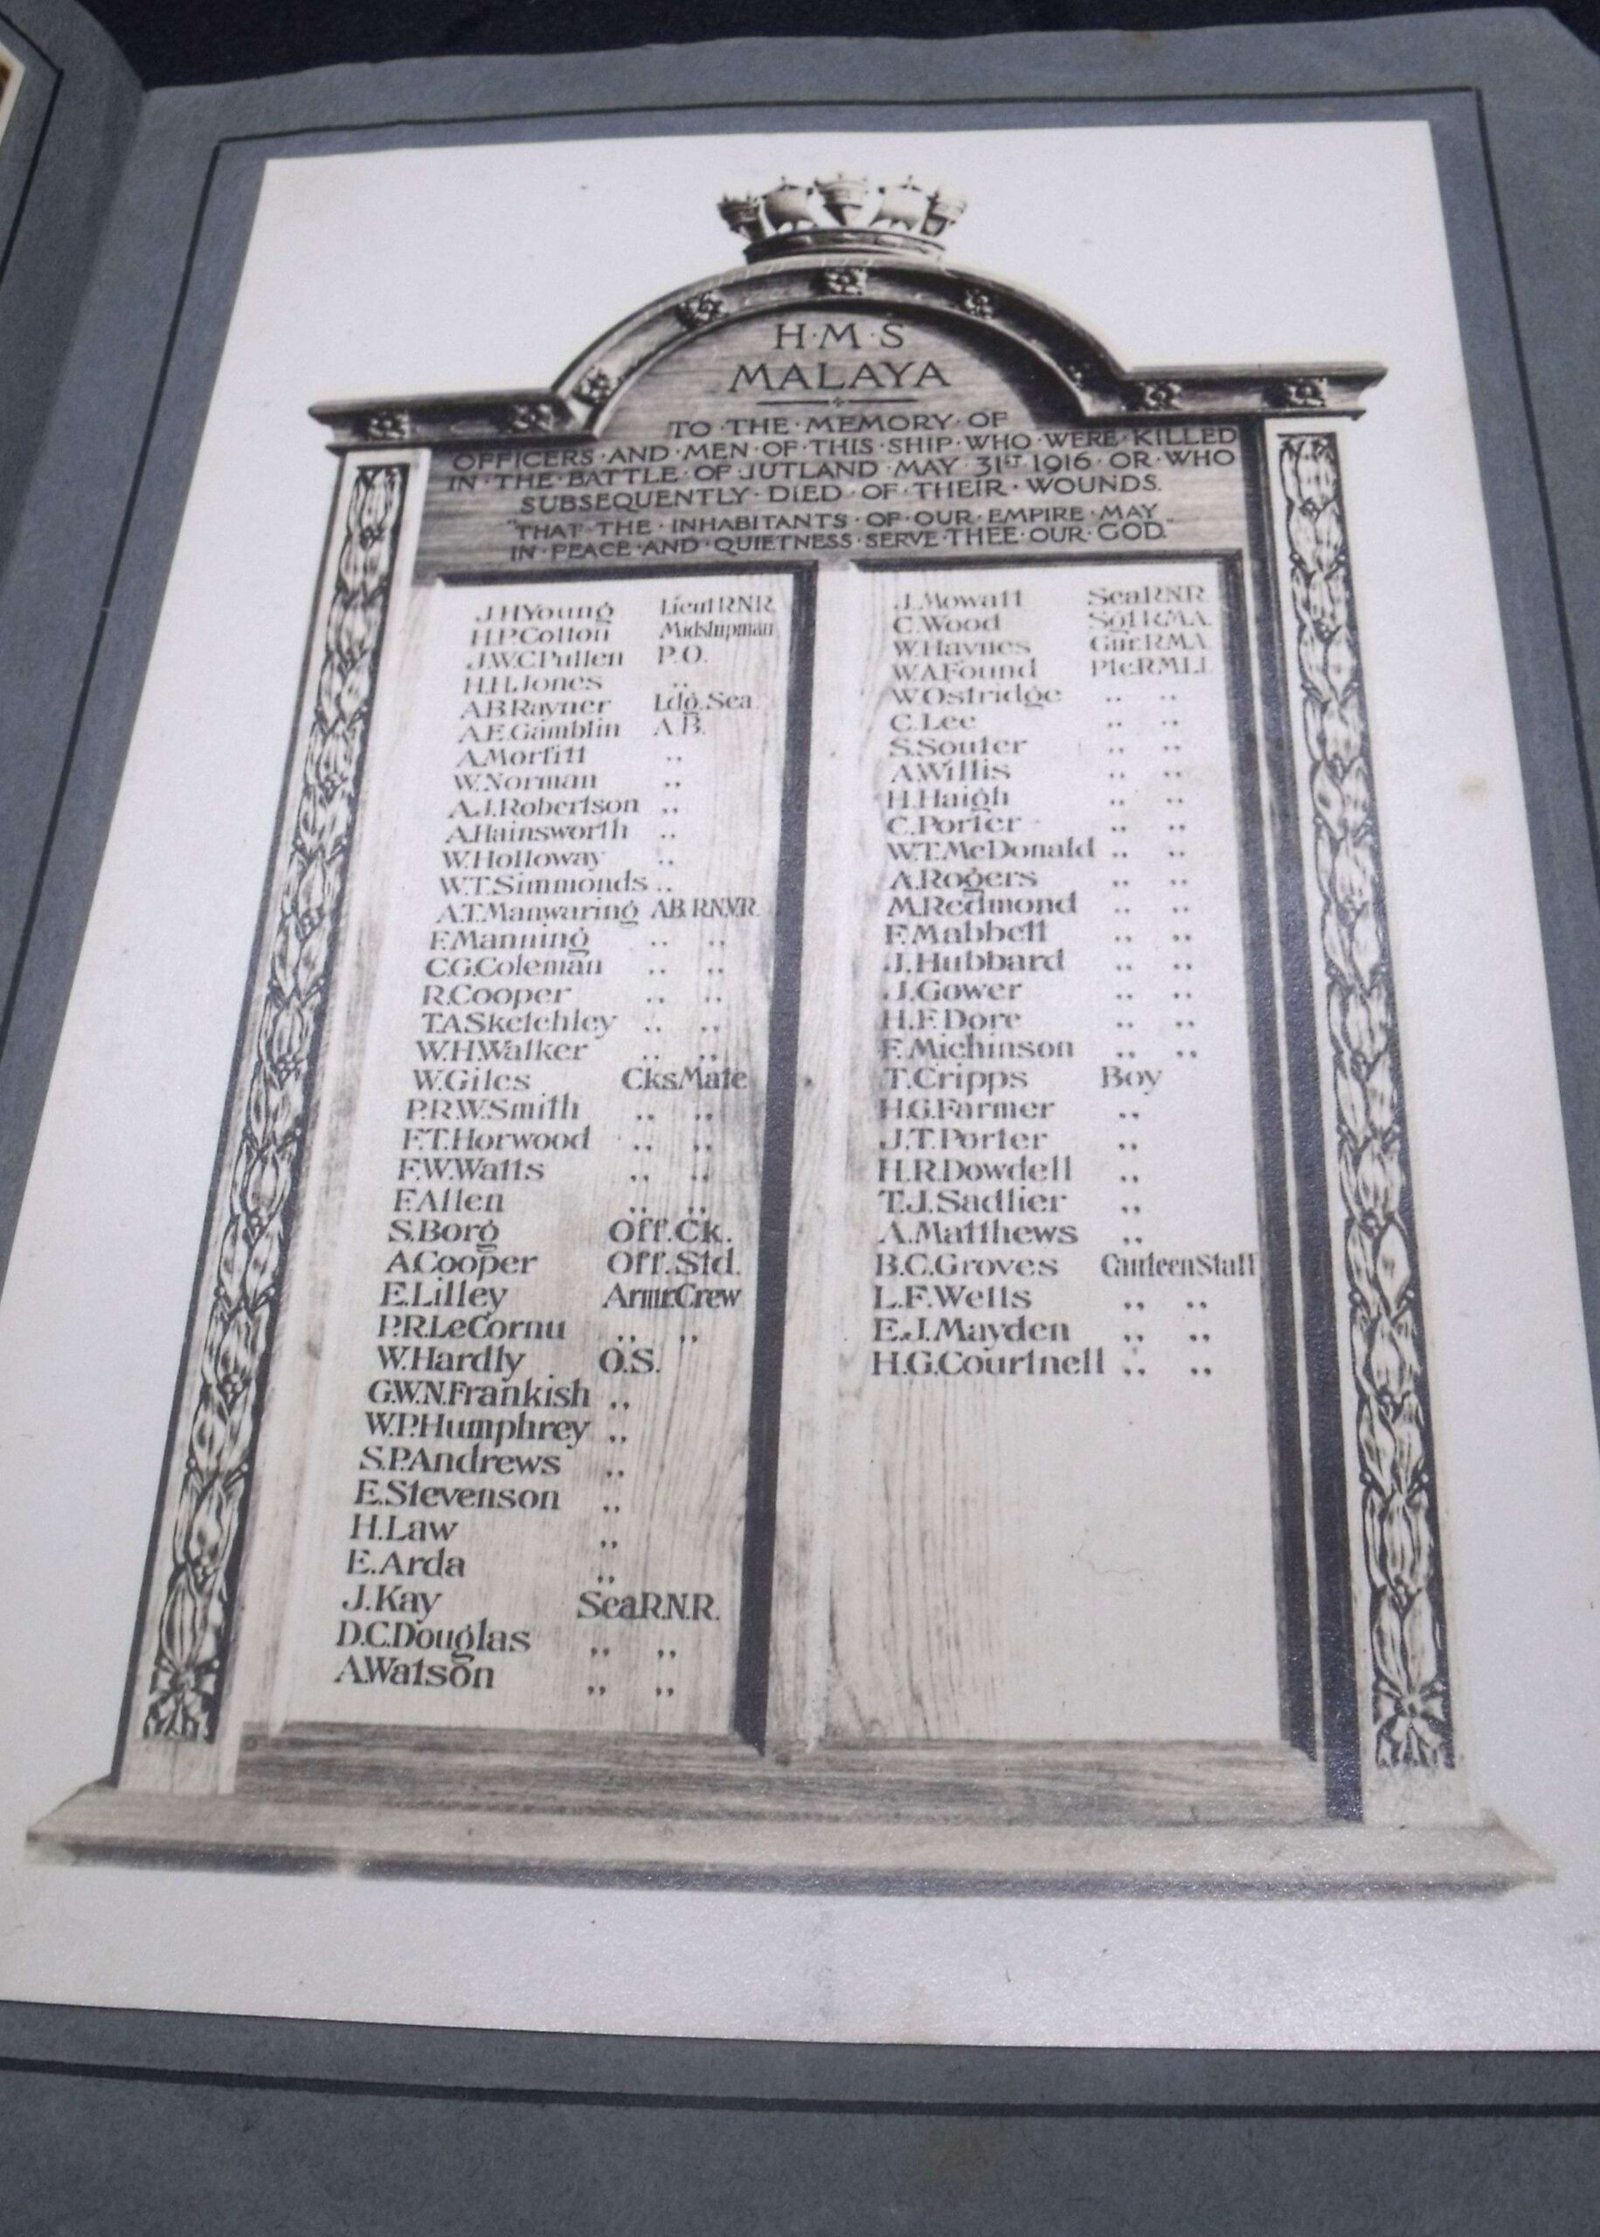 H·M·S
MALAYA
TO·THE·MEMORY·OF
OFFICERS·AND·MEN·OF·THIS·SHIP·WHO·WERE·KILLED
IN·THE·BATTLE·OF·JUTLAND·MAY·31ST 1916·OR·WHO
SUBSEQUENTLY·DIED·OF·THEIR·WOUNDS.
"THAT·THE·INHABITANTS·OF·OUR·EMPIRE·MAY
IN·PEACE·AND·QUIETNESS·SERVE·THEE·OUR·GOD."
J.H.Young Lieut R.N.R.
H.P.Cotton Midshipman
J.W.C.Pullen P.O.
H.H.Jones ..
A.B.Rayner Ldg.Sea.
A.E.Gamblin A.B.
A.Morfitt ..
W.Norman ..
A.J.Robertson ..
A.Hainsworth ..
W.Holloway ..
W.T.Simmonds ..
A.T.Manwaring A.B. R.N.V.R.
F.Manning .. ..
C.G.Coleman .. ..
R.Cooper .. ..
T.A.Sketchley .. ..
W.H.Walker .. ..
W.Giles Cks Mate
P.R.W.Smith .. ,,
F.T.Horwood .. ,,
F.W.Watts ,, ,,
F.Allen ,, ,,
S.Borg Off.Ck.
A.Cooper Off.Std.
E.Lilley Armr.Crew
P.R.LeCornu ,, ,,
W.Hardly O.S.
G.W.N.Frankish ,,
W.P.Humphrey ,,
S.P.Andrews ,,
E.Stevenson ,,
H.Law ,,
E.Arda ,,
J.Kay Sea R.N.R.
D.C.Douglas ,, ,,
A.Watson ,, ,,
J.Mowatt Sea R.N.R.
C.Wood Sgt R.M.A.
W.Haynes Gnr. R.M.A.
W.A.Found Pte R.M.L.I.
W.Ostridge .. ..
C.Lee .. ..
S.Souter .. ..
A.Willis .. ..
H.Haigh .. ..
C.Porter .. ..
W.T.McDonald .. ..
A.Rogers .. ..
M.Redmond .. ..
F.Mabbett .. ..
J.Hubbard .. ..
J.Gower .. ..
H.F.Dore .. ..
F.Michinson .. ..
T.Cripps Boy
H.G.Farmer ,,
J.T.Porter ,,
H.R.Dowdell ,,
T.J.Sadlier ,,
A.Matthews ,,
B.C.Groves Canteen Staff
L.F.Wells ,, ,,
E.J.Mayden ,, ,,
H.G.Courtnell ,, ,,